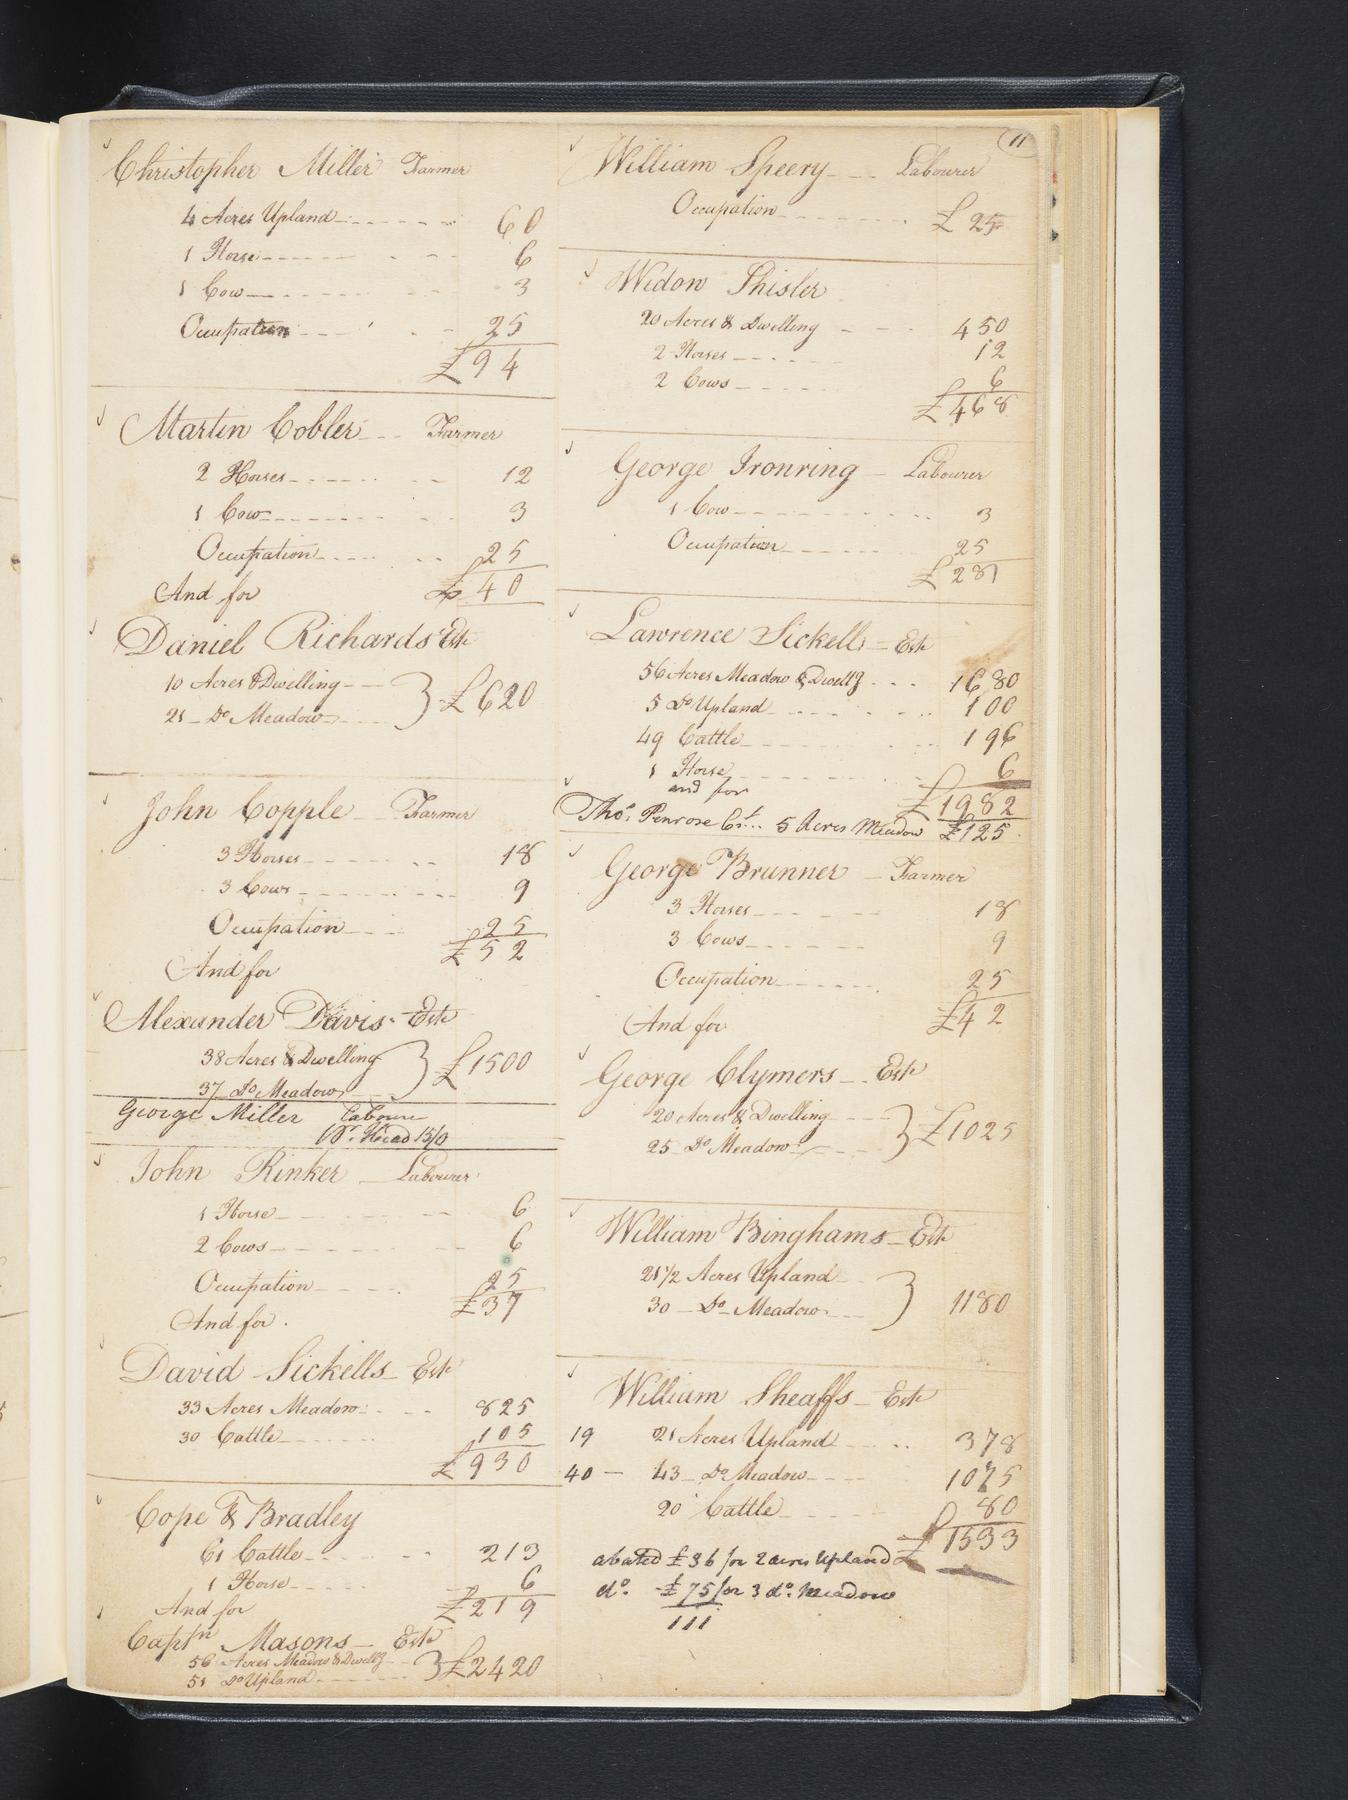 Christopher Miller Farmer
4 Acres Upland 60
1 Horse 6
1 Cow 3
Occupation 25
£94
Martin Cobler Farmer
2 Horses 12
1 Cow 3
Occupation 25
And for £40
Daniel Richards Est
10 Acres & Dwelling
21 Do Meadow } £620
John Copple Farmer
3 Horses 18
3 Cows 9
Occupation 25
£52
And for
Alexander Davis Est
38 Acres & Dwelling
37 Do Meadow } £1500
George Miller Labourer
Pr. Head 15/0
John Rinker Labourer
1 Horse 6
2 Cows 6
Occupation 25
£37
And for
David Sickells Est
33 Acres Meadow 825
30 Cattle 105
£930
Cope & Bradley
61 Cattle 213
1 Horse 6
And for £219
Captn Masons Est
56 Acres Meadow & Dwellg
51 Do Upland } £2420
11
William Speery Labourer
Occupation £25
Widow Shisler
20 Acres & Dwelling 450
2 Horses 12
2 Cows 6
£468
George Ironring Labourer
1 Cow 3
Occupation 25
£28
Lawrence Sickells Est
56 Acres Meadow & Dwellg 1680
5 Do Upland 100
49 Cattle 196
1 Horse 6
and for £1982
Thos. Penrose Est. 5 Acres Meadow £125
George Brunner Farmer
3 Horses 18
3 Cows 9
Occupation 25
And for £42
George Clymers Est
20 Acres & Dwelling
25 Do Meadow } £1025
William Binghams Est
21 1/2 Acres Upland
30 Do Meadow } 1180
William Sheaffs Est
19 21 Acres Upland 378
40 43 Do Meadow 1075
20 Cattle 80
£1533
abated £36 for 2 acres Upland
do. £75 for 3 do. Meadow
111